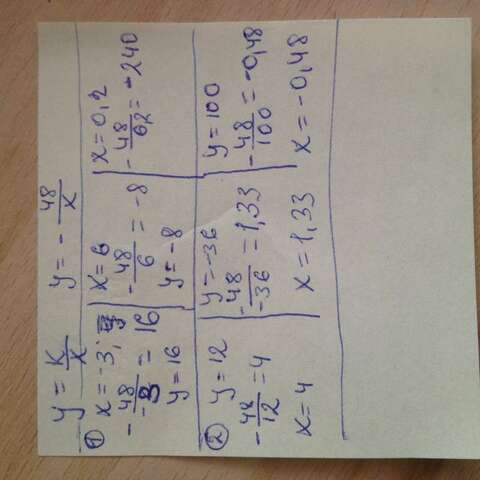 y = K/x    y = - 48/x
① x = -3;
- 48/-3 = 16
y = 16
x = 6
- 48/6 = -8
y = -8
x = 0,2
- 48/02 = -240
② y = 12
- 48/12 = 4
x = 4
y = -36
- 48/-36 = 1,33
x = 1,33
y = 100
- 48/100 = -0,48
x = -0,48